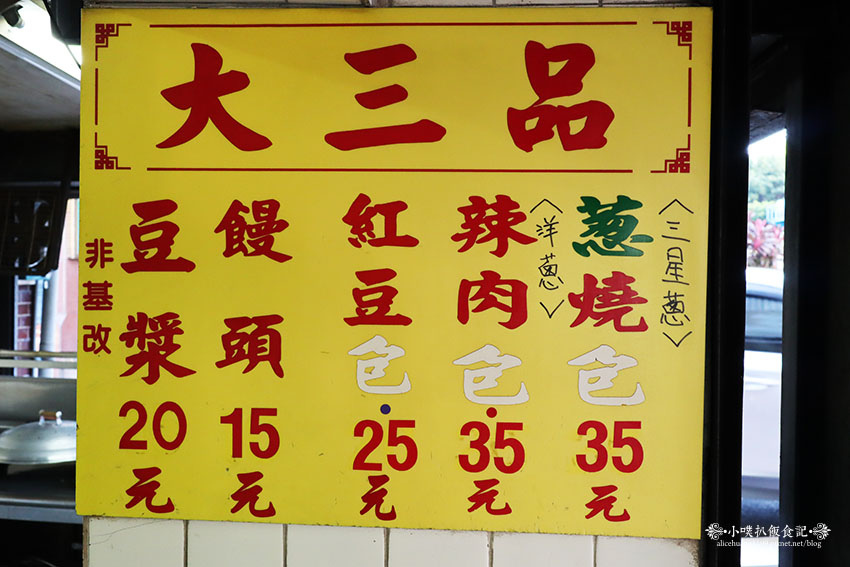 大三品
〈三星蔥〉
葱燒包35元
〈洋蔥〉
辣肉包35元
紅豆包25元
饅頭15元
豆漿20元
非基改
小噗扒飯食記